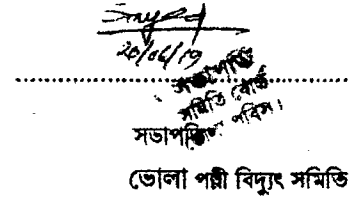 20/06/19
সভাপতি
সমিতি বোর্ড
পবিস।
সভাপতি
ভোলা পল্লী বিদ্যুৎ সমিতি